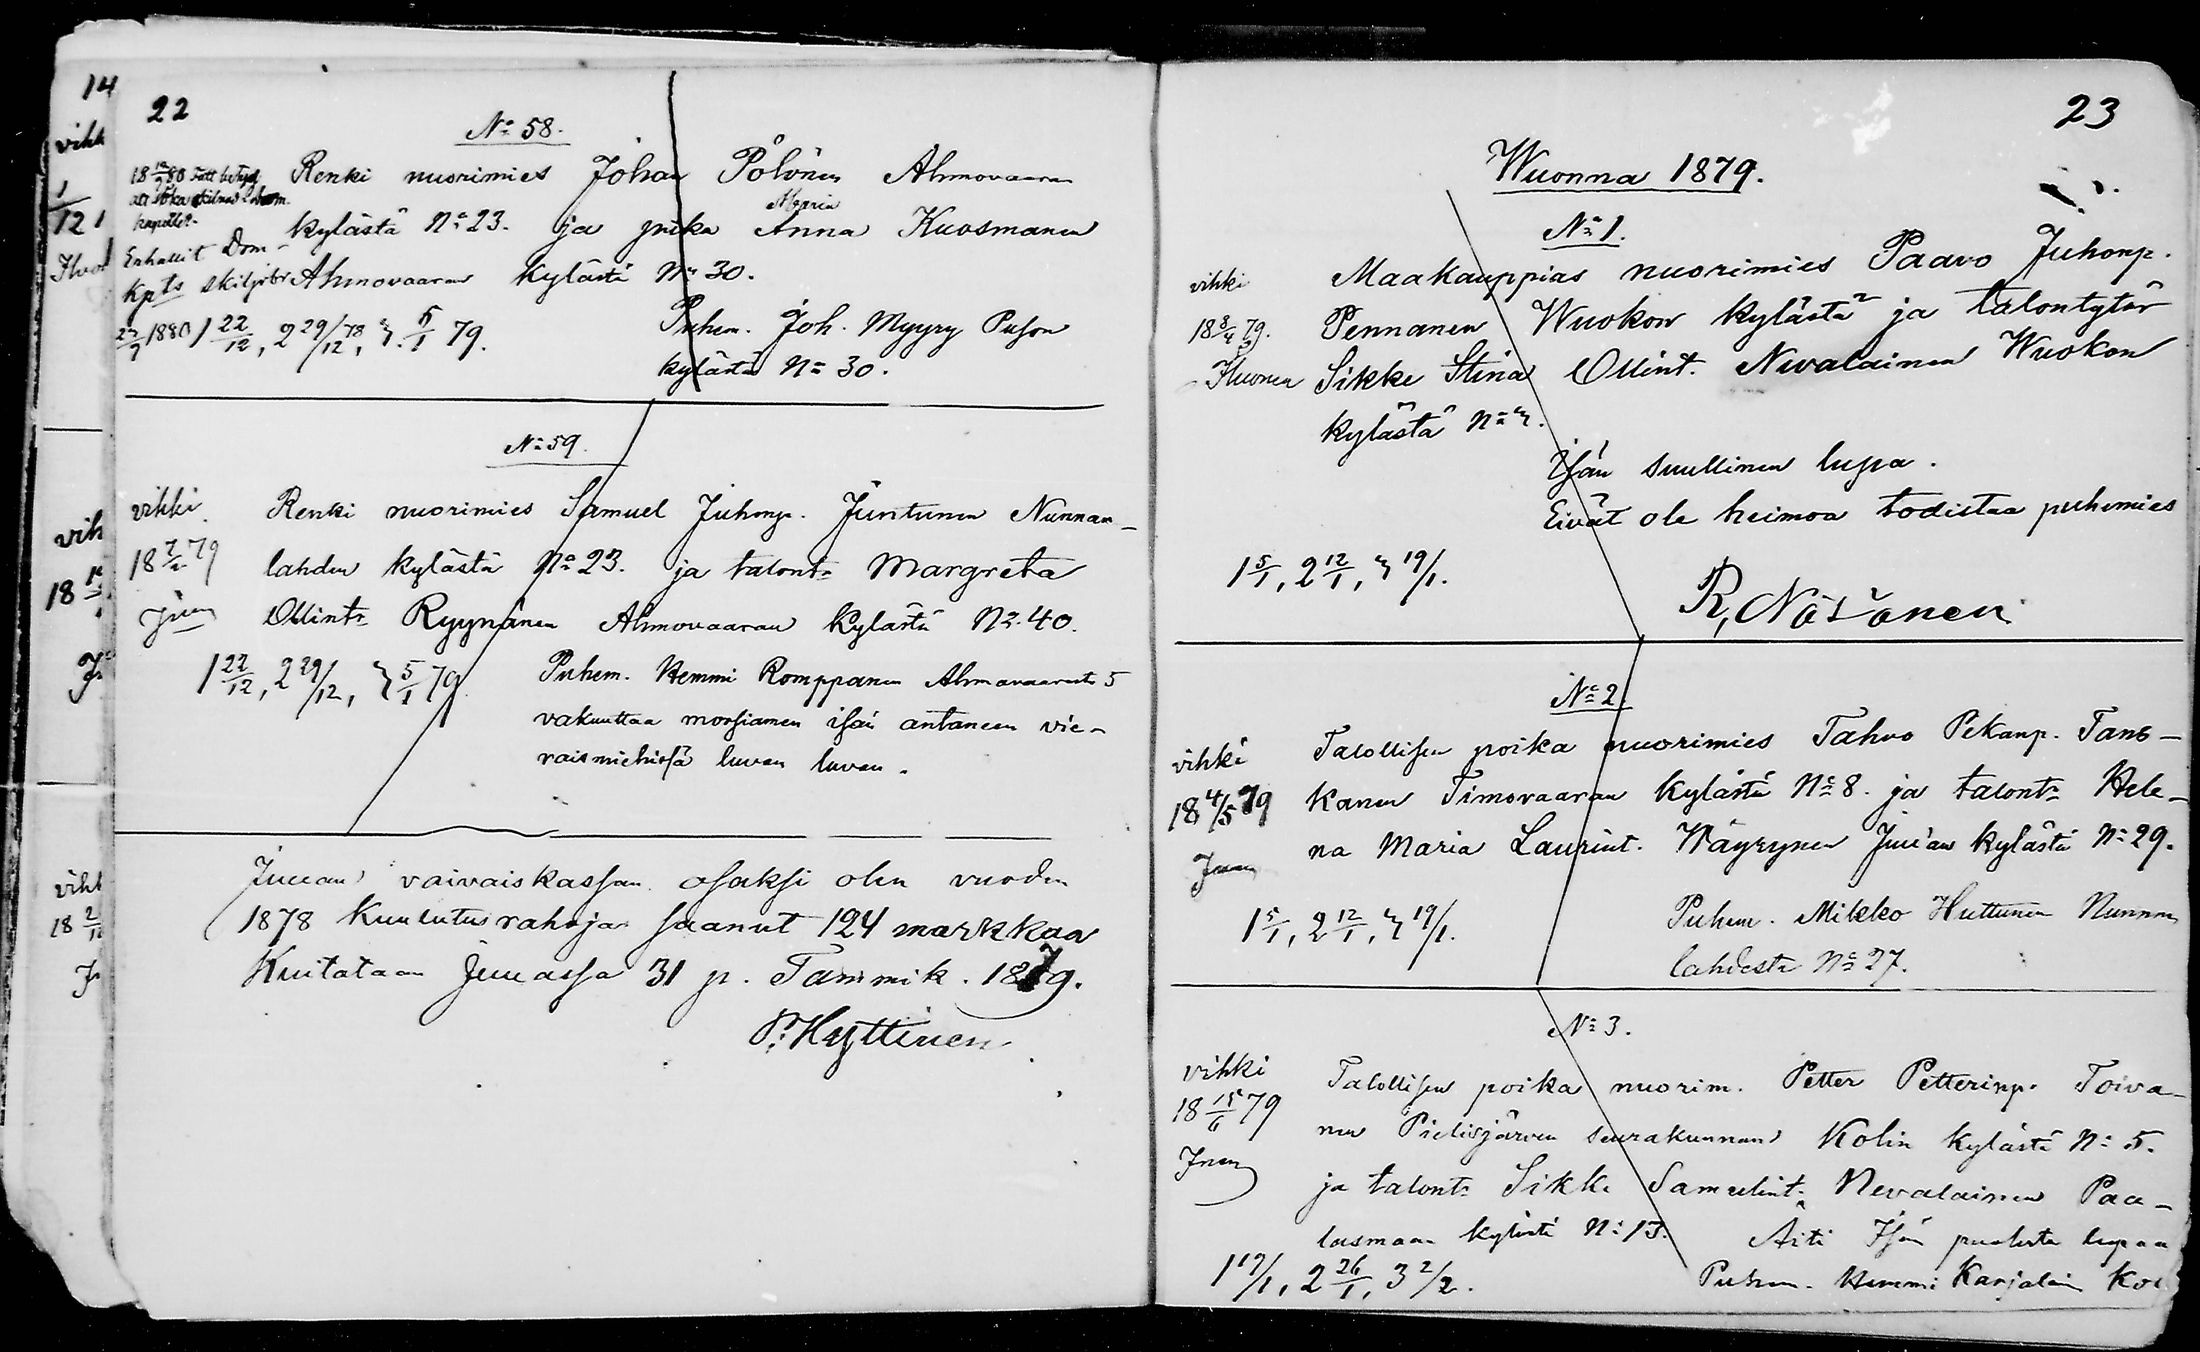 14
vihk
1/12 1
vih
18
vihk
18
22
№ 58.
Renki nuorimies Johan Pölönen Ahmovaaran
Maria
kylästä № 23. ja piika Anna Kuosmanen
Ahmovaaran kylästä № 30.
Erhållit Dom-
kpts skiljobr
1880 1 22/12, 2 29/12 78, 3. 5/1 79.
Puhem. Joh. Myyry Puson
kylästä № 30.
№ 59.
vihki
Renki nuorimies Samuel Juhonp. Juntunen Nunnan-
18 79
lahden kylästä № 23. ja talontr Margreta
Ollintr Ryynänen Ahmovaaran kylästä № 40.
1 22/12, 2 29/12, 3 5/1 79.
Puhem. Hemmi Romppanen Ahmovaarasta 5
vakuuttaa morsiamen isän antaneen vie-
raismiehissä luvan luvan.
Juuan vaivaiskassan osaksi olen vuoden
1878 Kuulutusrahoja saanut 124 markkaa
Kuitataan Juuassa 31 p. Tammik. 1879.
P. Hyttinen
23
Wuonna 1879.
№ 1.
vihki
Maakauppias nuorimies Paavo Juhonp.
18 79.
Pennanen Wuokon kylästä 2 ja talontytär
Sikke Stina Ollint. Nevalainen Wuokon
kylästä № 3.
Isän suullinen lupa.
Eivät ole heimoa todistaa puhemies
1 5/1, 2 12/1, 3 19/1.
R, Nösönen
№ 2
vihki
Talollisen poika nuorimies Tahvo Pekanp. Tans-
18 4/5 79
kanen Timovaaran kylästä № 8. ja talontr Hele-
na Maria Laurint. Wäyrynen Juuan kylästä № 29.
1 5/1, 2 12/1, 3 19/1.
Puhem. Mikko Huttunen Nunnan
lahdesta № 27.
№ 3.
vihki
Talollisen poika nuorim. Petter Petterinp. Toiva-
18 15/6 79
nen Pielisjärven seurakunnan Kolin kylästä № 5.
ja talontr Sikke Samulint. Nevalainen Paa-
lasmaan kylästä № 13. Äiti Isän puolesta lupaa
1 19/1, 2 26/1, 3 2/2.
Puhem. Hemmi Karjalain